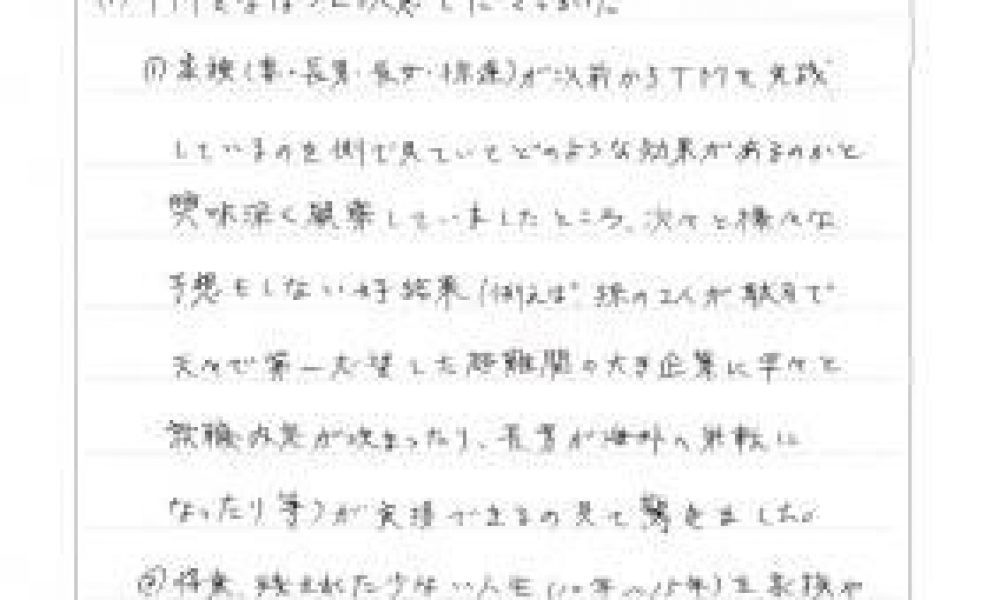 ① 家族(妻・長男・長女・次源)が以前からTMを実践
しているのを側で見ていてどのような効果があるのかと
興味深く観察していましたところ、次々と様々な
予想もしない好結果(例えば、孫の2人が
夫々で第一志望した超難関の大き企業に早々と
就職内定が決まったり、長男が海外へ栄転に
なったり等)が実現できるの見て驚きました。
② 将来、残された少ない人生(10年〜15年)を家族や